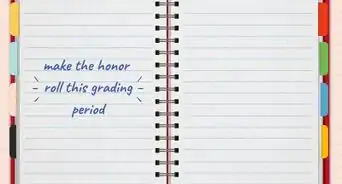 make the honor
roll this grading
period